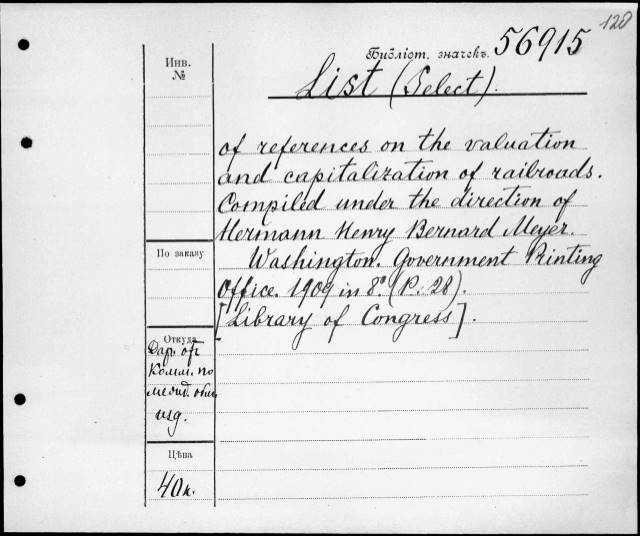 128
Библіот. значекъ. 56915
List (Select).
of references on the valuation
and capitalization of railroads.
Compiled under the direction of
Hermann Henry Bernard Meyer.
Washington. Government Printing
Office. 1909 in 8°. (P. 28).
[Library of Congress].
Инв.
№
По заказу
Откуда
Даръ отъ
Комм. по
межд. обм.
изд.
Цѣна
40к.